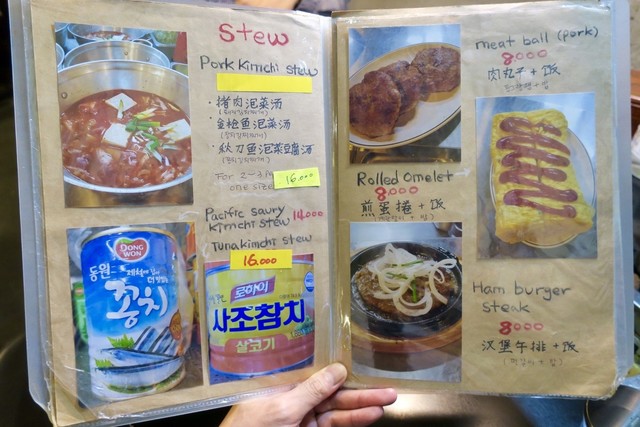 Stew
Pork Kimchi stew
· 猪肉泡菜汤
(돼지김치찌개)
· 金枪鱼泡菜汤
(참치김치찌개)
· 秋刀鱼泡菜豆腐汤
(꽁치김치찌개)
For 2~
one size
16.000
Pacific saury 14.000
kimchi stew
Tuna kimchi stew
16.000
DONG WON
동원
꽁치
로하이
사조참치
살코기
meat ball (pork)
8.000
肉丸子 + 饭
Rolled Omelet
8.000
煎蛋捲 + 饭
(계란말이 + 밥)
Ham burger
steak
8.000
汉堡午排 + 饭